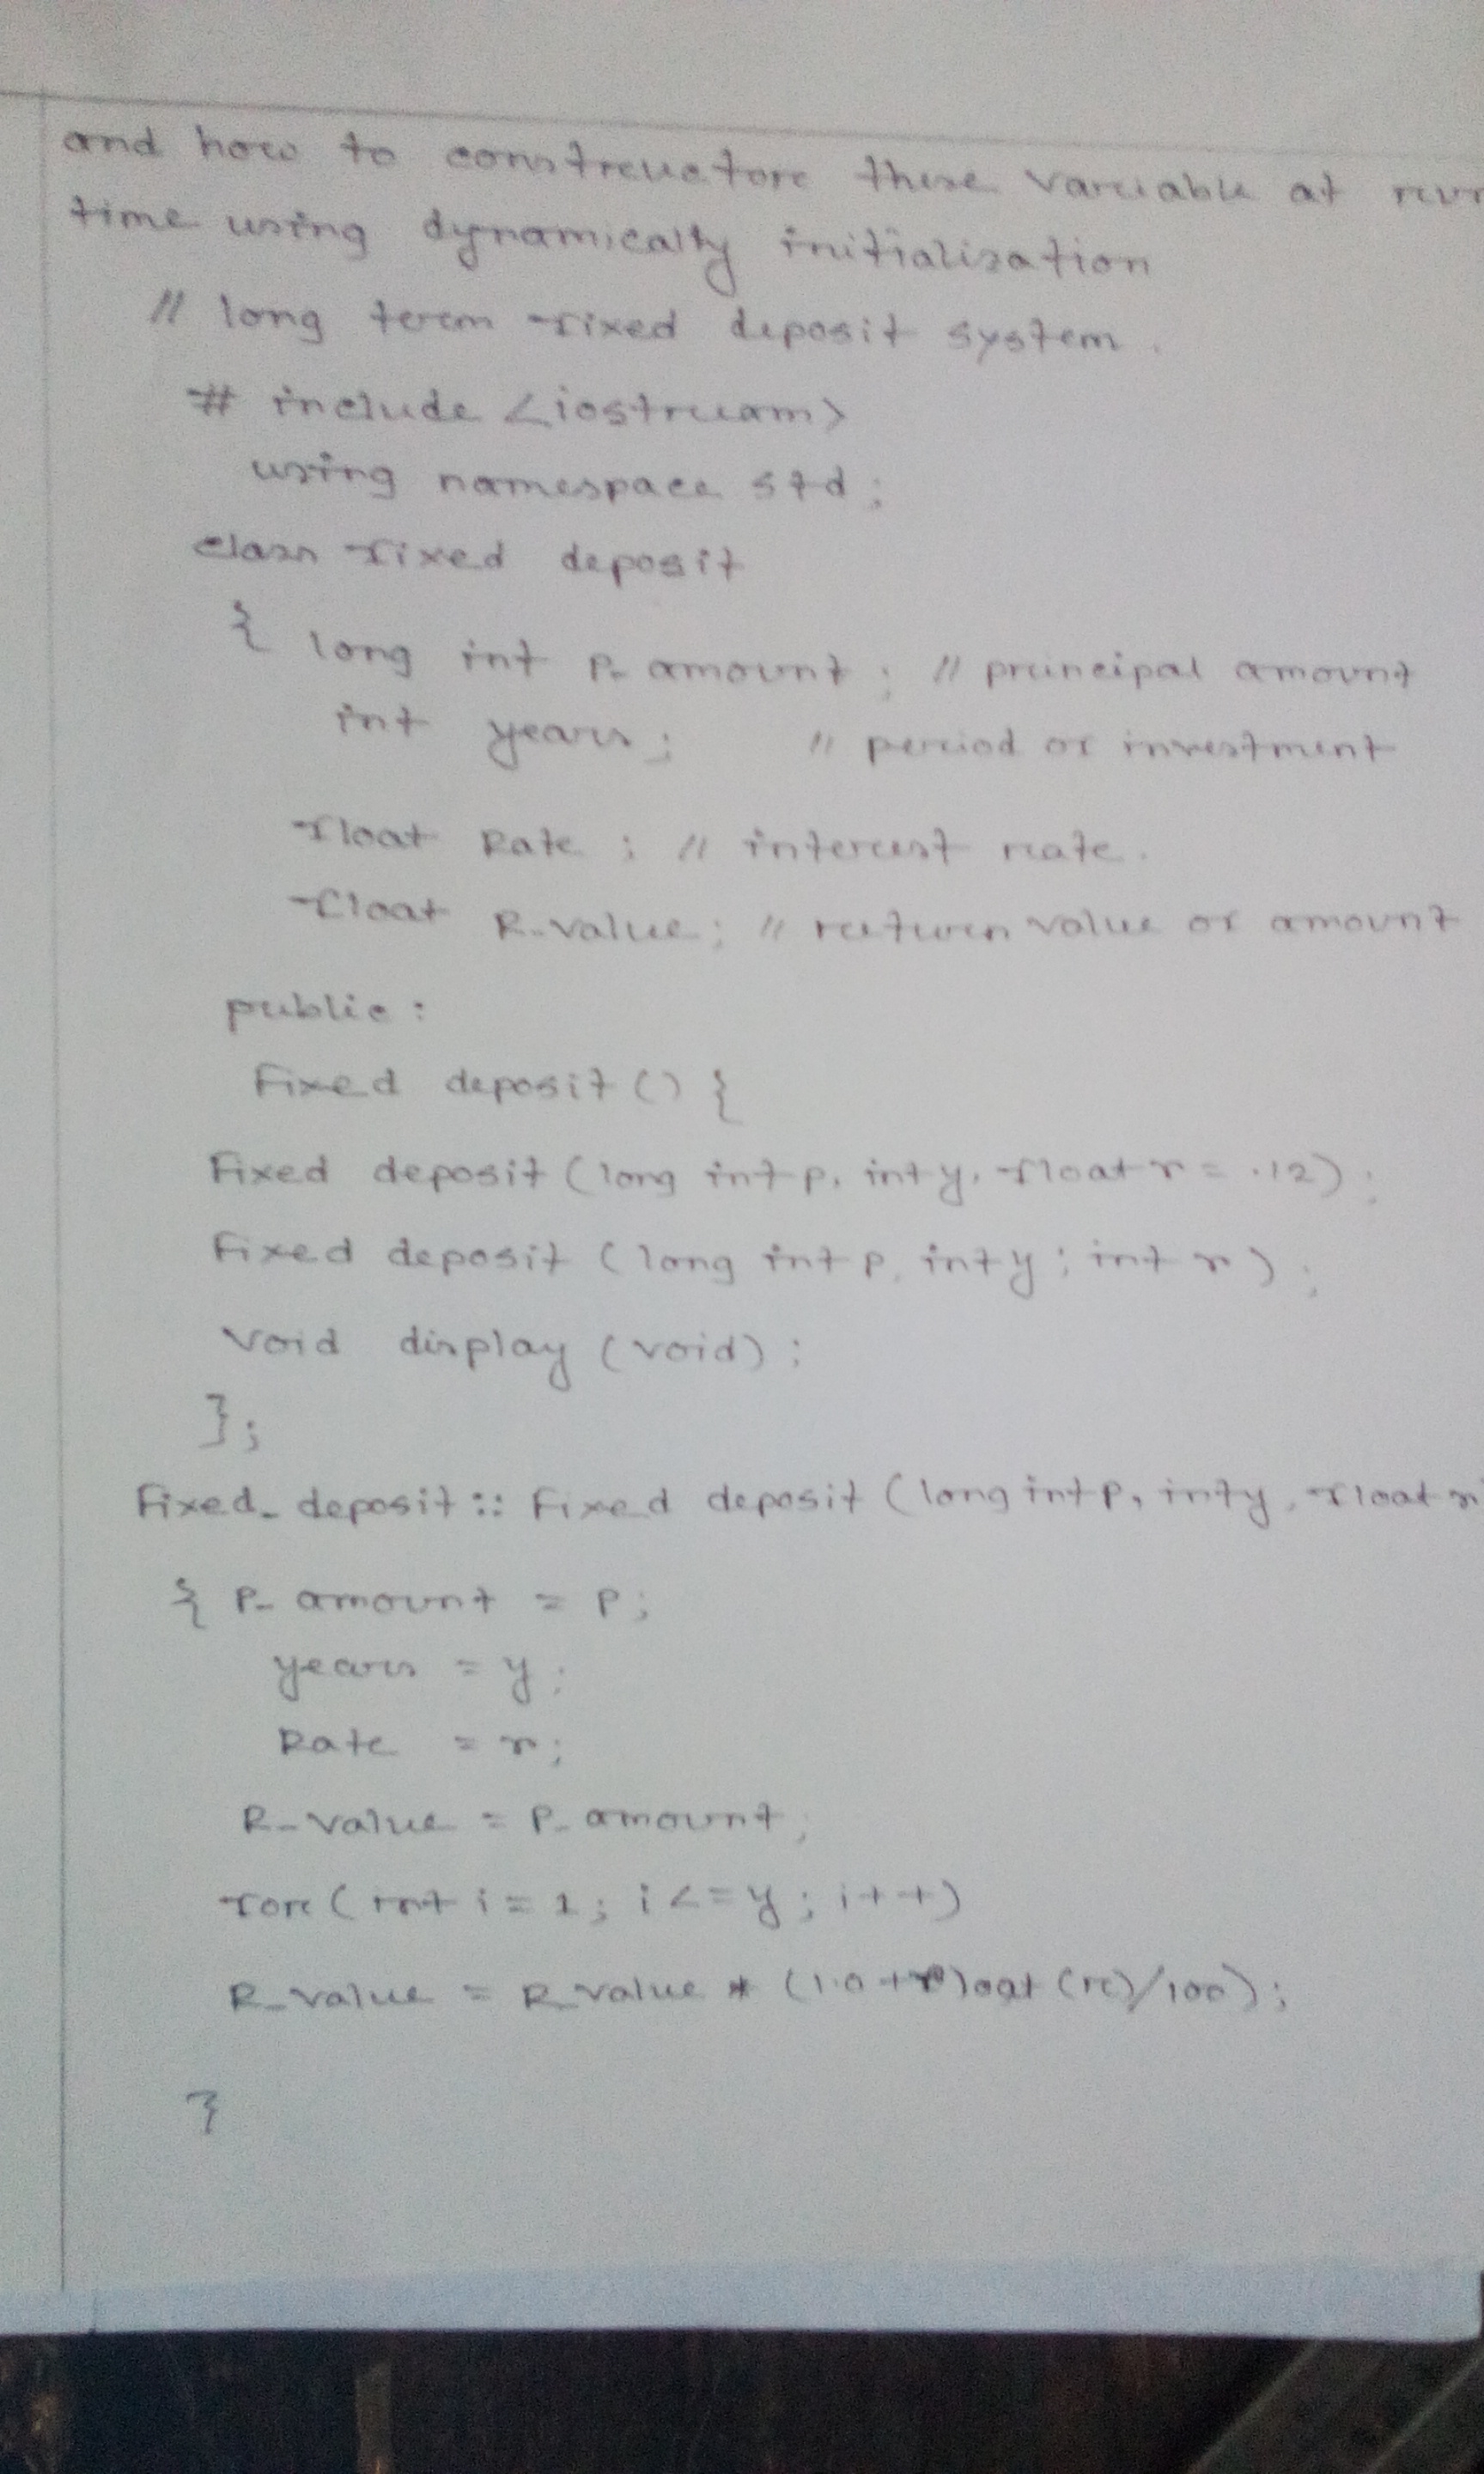 and how to constructore these variable at run
time using dynamically initialization
// long term fixed deposit system.
# include <iostream>
using namespace std;
class fixed deposit
{ long int P_ amount; // principal amount
int years; // period of investment
float Rate; // interest rate.
float R_value; // return value of amount
public:
Fixed deposit() {
Fixed deposit (long int p, int y, float r = .12);
Fixed deposit (long int p, int y; int r);
void display (void);
};
Fixed_ deposit :: Fixed deposit (long int p, int y, float r
{ P_ amount = P;
years = y;
Rate = r;
R_value = P_ amount;
for (int i = 1; i <= y; i++)
R_value = R_value * (1.0 + float (r)/100);
}